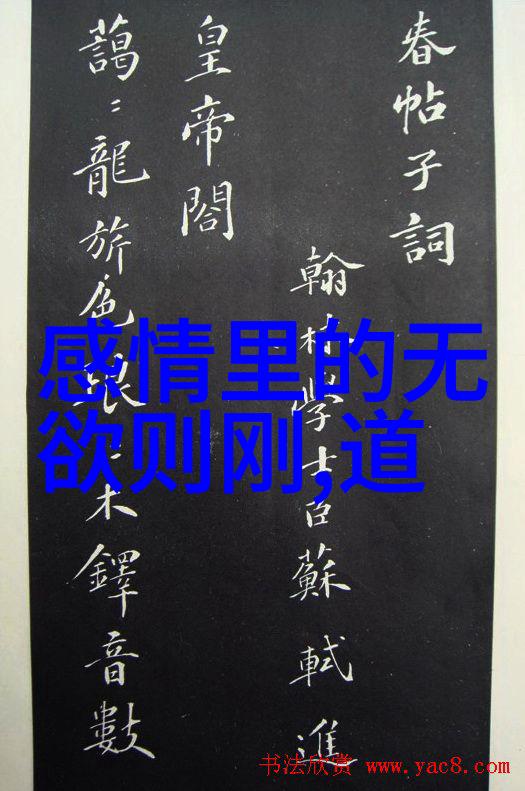 春帖子詞
翰林學士臣蘇軾進
皇帝閤
藹〻龍旂色琅〻木鐸音數
感情里的无
欲则刚,道
书法欣赏 www.yac8.com